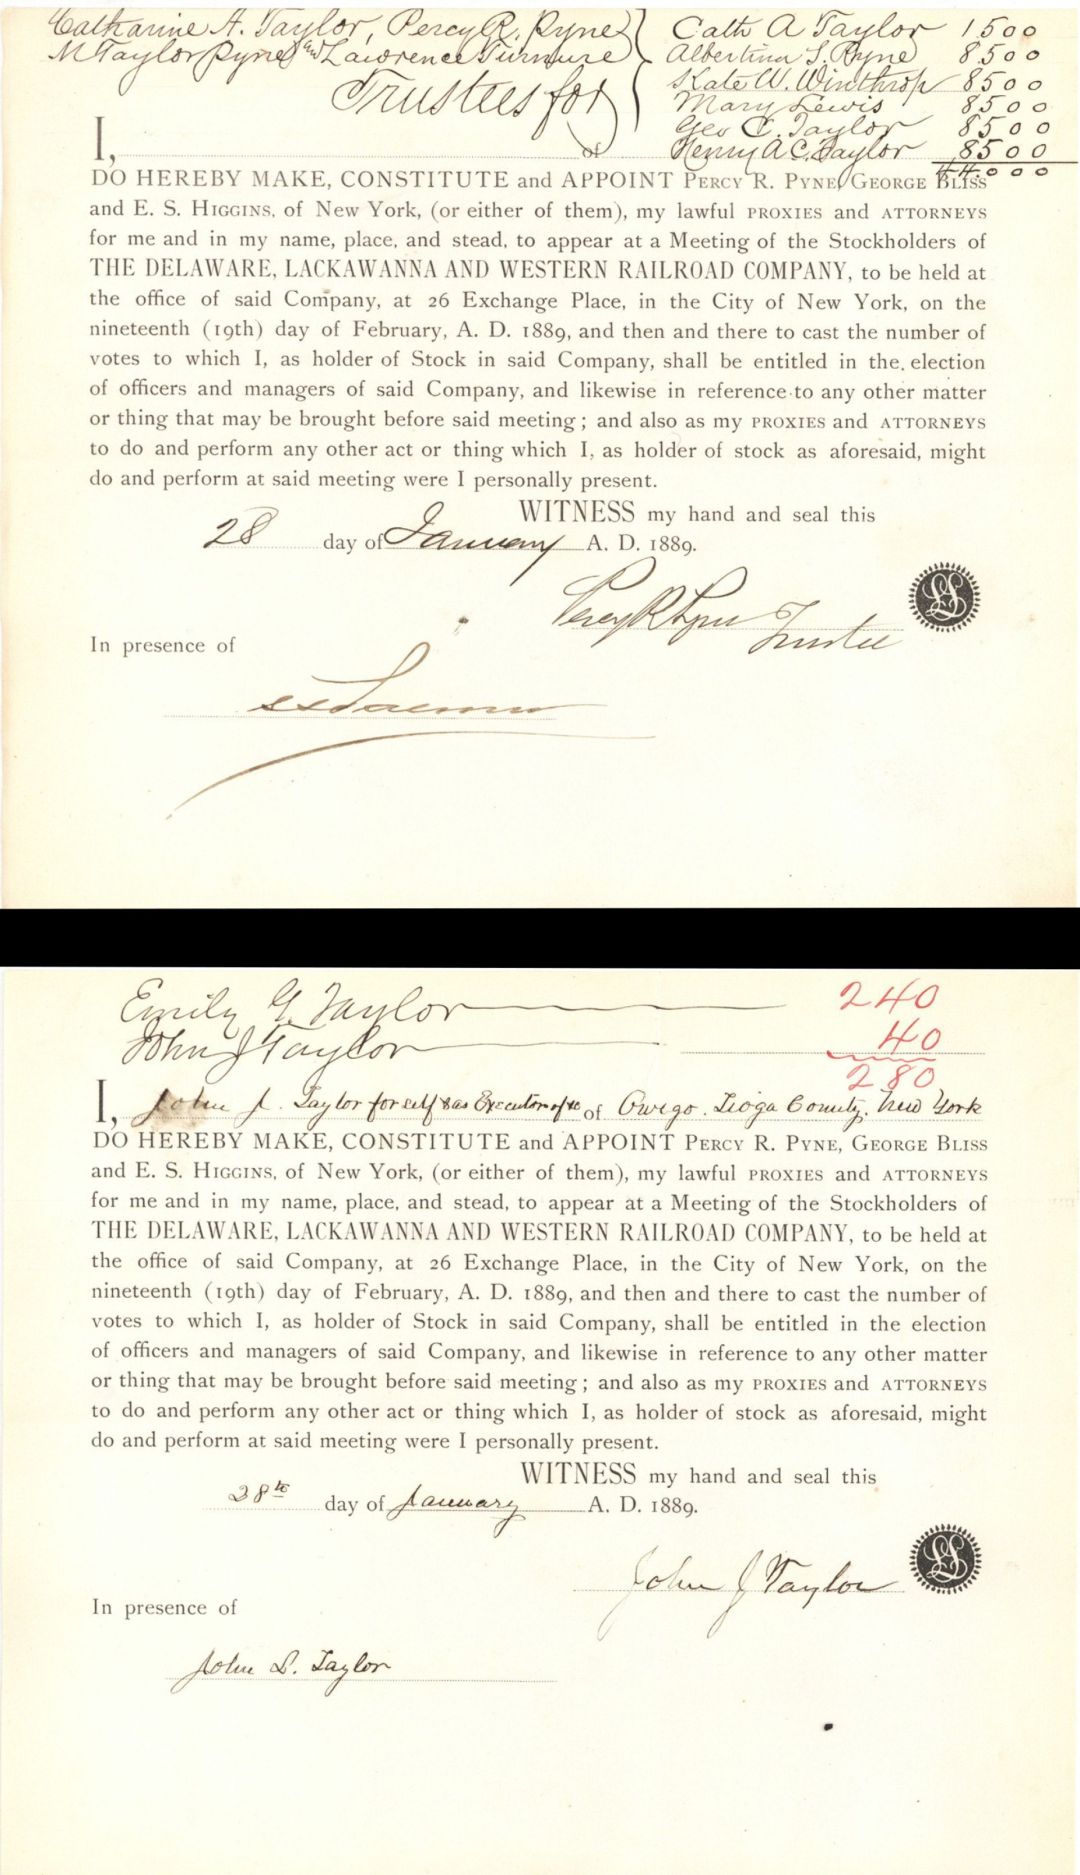 Catharine A. Taylor, Percy R. Pyne
M Taylor Pyne and Lawrence Turnure
Trustees for
Cath A Taylor 1500
Albertina S. Pyne 8500
Kate W. Winthrop 8500
Mary Lewis 8500
Geo C. Taylor 8500
Henry A C. Taylor 8500
44.000
I, of
DO HEREBY MAKE, CONSTITUTE and APPOINT PERCY R. PYNE, GEORGE BLISS
and E. S. HIGGINS, of New York, (or either of them), my lawful PROXIES and ATTORNEYS
for me and in my name, place, and stead, to appear at a Meeting of the Stockholders of
THE DELAWARE, LACKAWANNA AND WESTERN RAILROAD COMPANY, to be held at
the office of said Company, at 26 Exchange Place, in the City of New York, on the
nineteenth (19th) day of February, A. D. 1889, and then and there to cast the number of
votes to which I, as holder of Stock in said Company, shall be entitled in the election
of officers and managers of said Company, and likewise in reference to any other matter
or thing that may be brought before said meeting; and also as my PROXIES and ATTORNEYS
to do and perform any other act or thing which I, as holder of stock as aforesaid, might
do and perform at said meeting were I personally present.
WITNESS my hand and seal this
28 day of January A. D. 1889.
Percy R Pyne Trustee
LS
In presence of
Emily G. Taylor 240
John J Taylor 40
280
I, John J. Taylor for self & as Executor of &c of Owego. Tioga County, New York
DO HEREBY MAKE, CONSTITUTE and APPOINT PERCY R. PYNE, GEORGE BLISS
and E. S. HIGGINS, of New York, (or either of them), my lawful PROXIES and ATTORNEYS
for me and in my name, place, and stead, to appear at a Meeting of the Stockholders of
THE DELAWARE, LACKAWANNA AND WESTERN RAILROAD COMPANY, to be held at
the office of said Company, at 26 Exchange Place, in the City of New York, on the
nineteenth (19th) day of February, A. D. 1889, and then and there to cast the number of
votes to which I, as holder of Stock in said Company, shall be entitled in the election
of officers and managers of said Company, and likewise in reference to any other matter
or thing that may be brought before said meeting; and also as my PROXIES and ATTORNEYS
to do and perform any other act or thing which I, as holder of stock as aforesaid, might
do and perform at said meeting were I personally present.
WITNESS my hand and seal this
28th day of January A. D. 1889.
John J Taylor
LS
In presence of
John L. Taylor